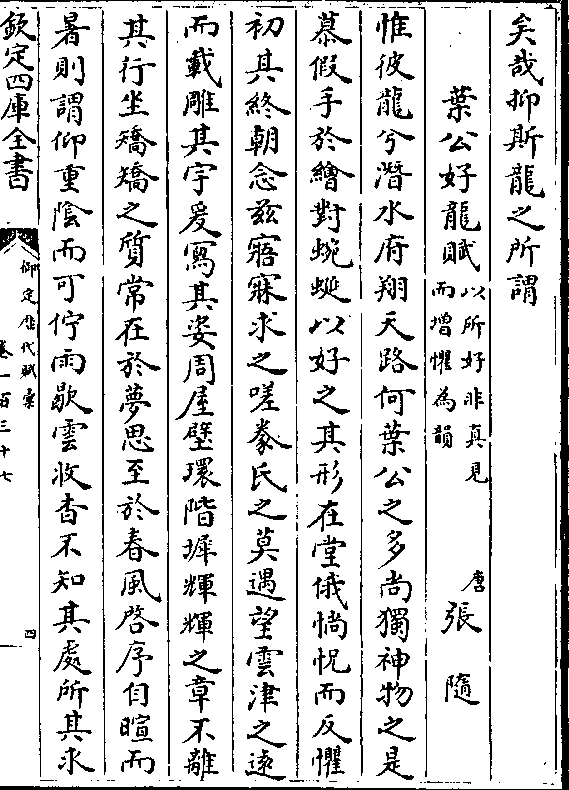 矣哉抑斯龍之所謂
葉公好龍賦以所好非真見而增懼為韻 唐張隨
惟彼龍兮潛水府翔天路何葉公之多尚獨神物之是
慕假手於繪對蜿蜒以好之其形在堂俄惝怳而反懼
初其終朝念茲寤寐求之嗟豢氏之莫遇望雲津之遠
而載雕其宇爰寫其姿周屋壁環階墀輝輝之章不離
其行坐矯矯之質常在於夢思至於春風啓序自暄而
暑則謂仰重陰而可佇雨歇雲收杳不知其處所其求
欽定四庫全書
御定歷代賦彙
卷一百三十七
四